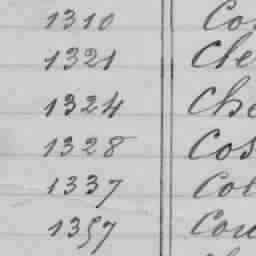 1310 Co
1321 Che
1324 Che
1328 Cos
1337 Col
1357 Cou